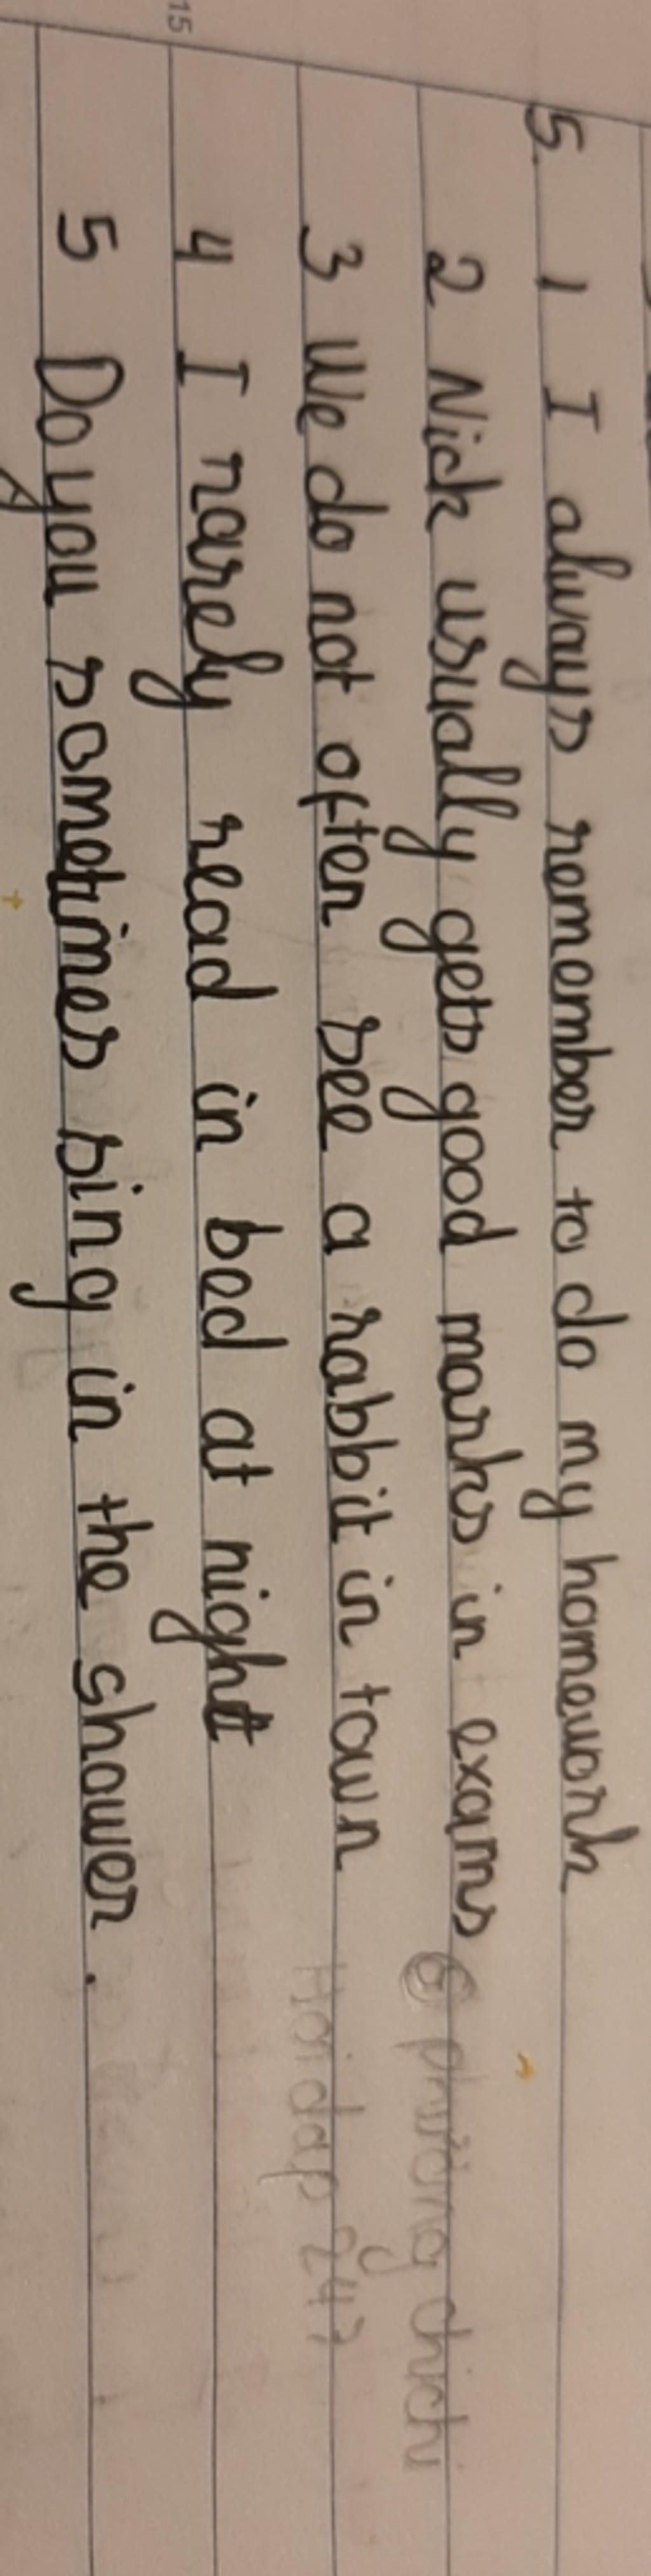 5. 1 I always remember to do my homework
2 Nick usually gets good marks in exams
3 We do not often see a rabbit in town
4 I rarely read in bed at night
5 Do you sometimes sing in the shower.
© phuong chichi
Hoidap 247
15